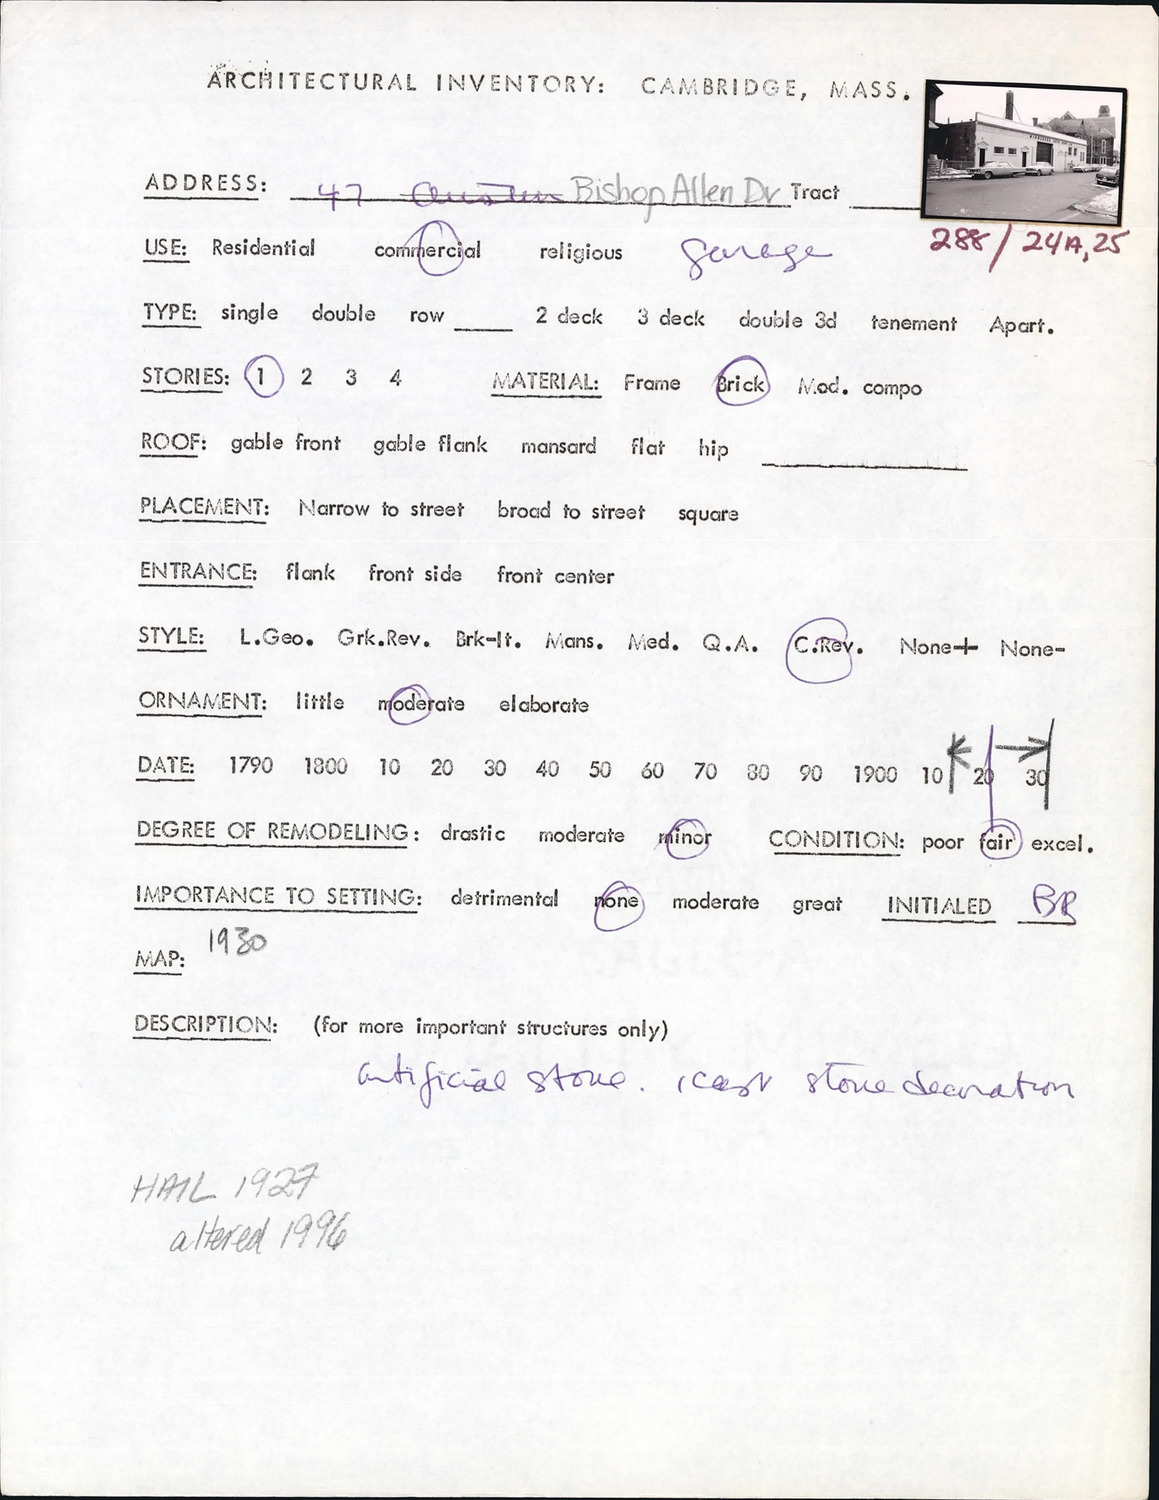 ARCHITECTURAL INVENTORY: CAMBRIDGE, MASS.
ADDRESS: 47 Austin Bishop Allen Dr Tract
288/24A,25
USE: Residential commercial religious garage
TYPE: single double row ____ 2 deck 3 deck double 3d tenement Apart.
STORIES: 1 2 3 4 MATERIAL: Frame Brick Mod. compo
ROOF: gable front gable flank mansard flat hip
PLACEMENT: Narrow to street broad to street square
ENTRANCE: flank front side front center
STYLE: L.Geo. Grk.Rev. Brk-It. Mans. Med. Q.A. C.Rev. None+ None-
ORNAMENT: little moderate elaborate
DATE: 1790 1800 10 20 30 40 50 60 70 80 90 1900 10 20 30
DEGREE OF REMODELING: drastic moderate minor CONDITION: poor fair excel.
IMPORTANCE TO SETTING: detrimental none moderate great INITIALED BR
1930
MAP:
DESCRIPTION: (for more important structures only)
artificial stone. cast stone decoration
HAIL 1927
altered 1996